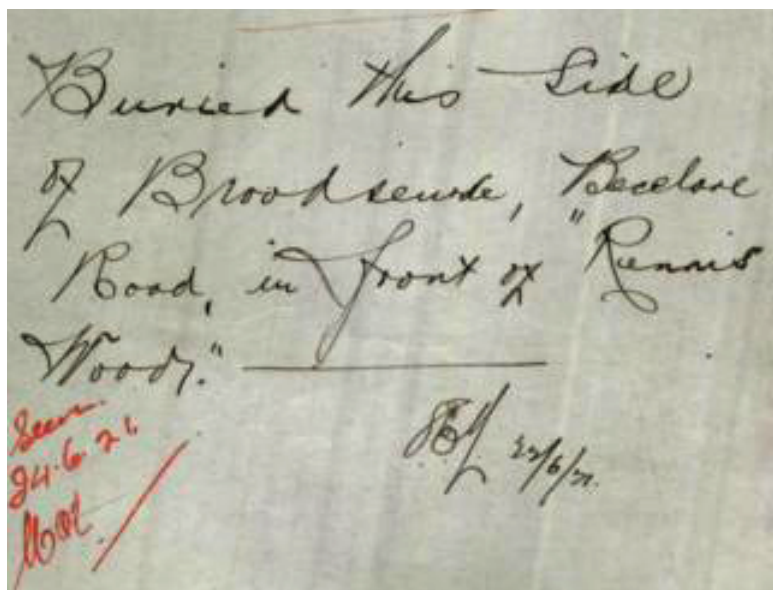 Buried this Side
of Broodseinde, Becelare
Road, in front of "Rennis
Woods."
22/6/21.
Seen.
24.6.21.